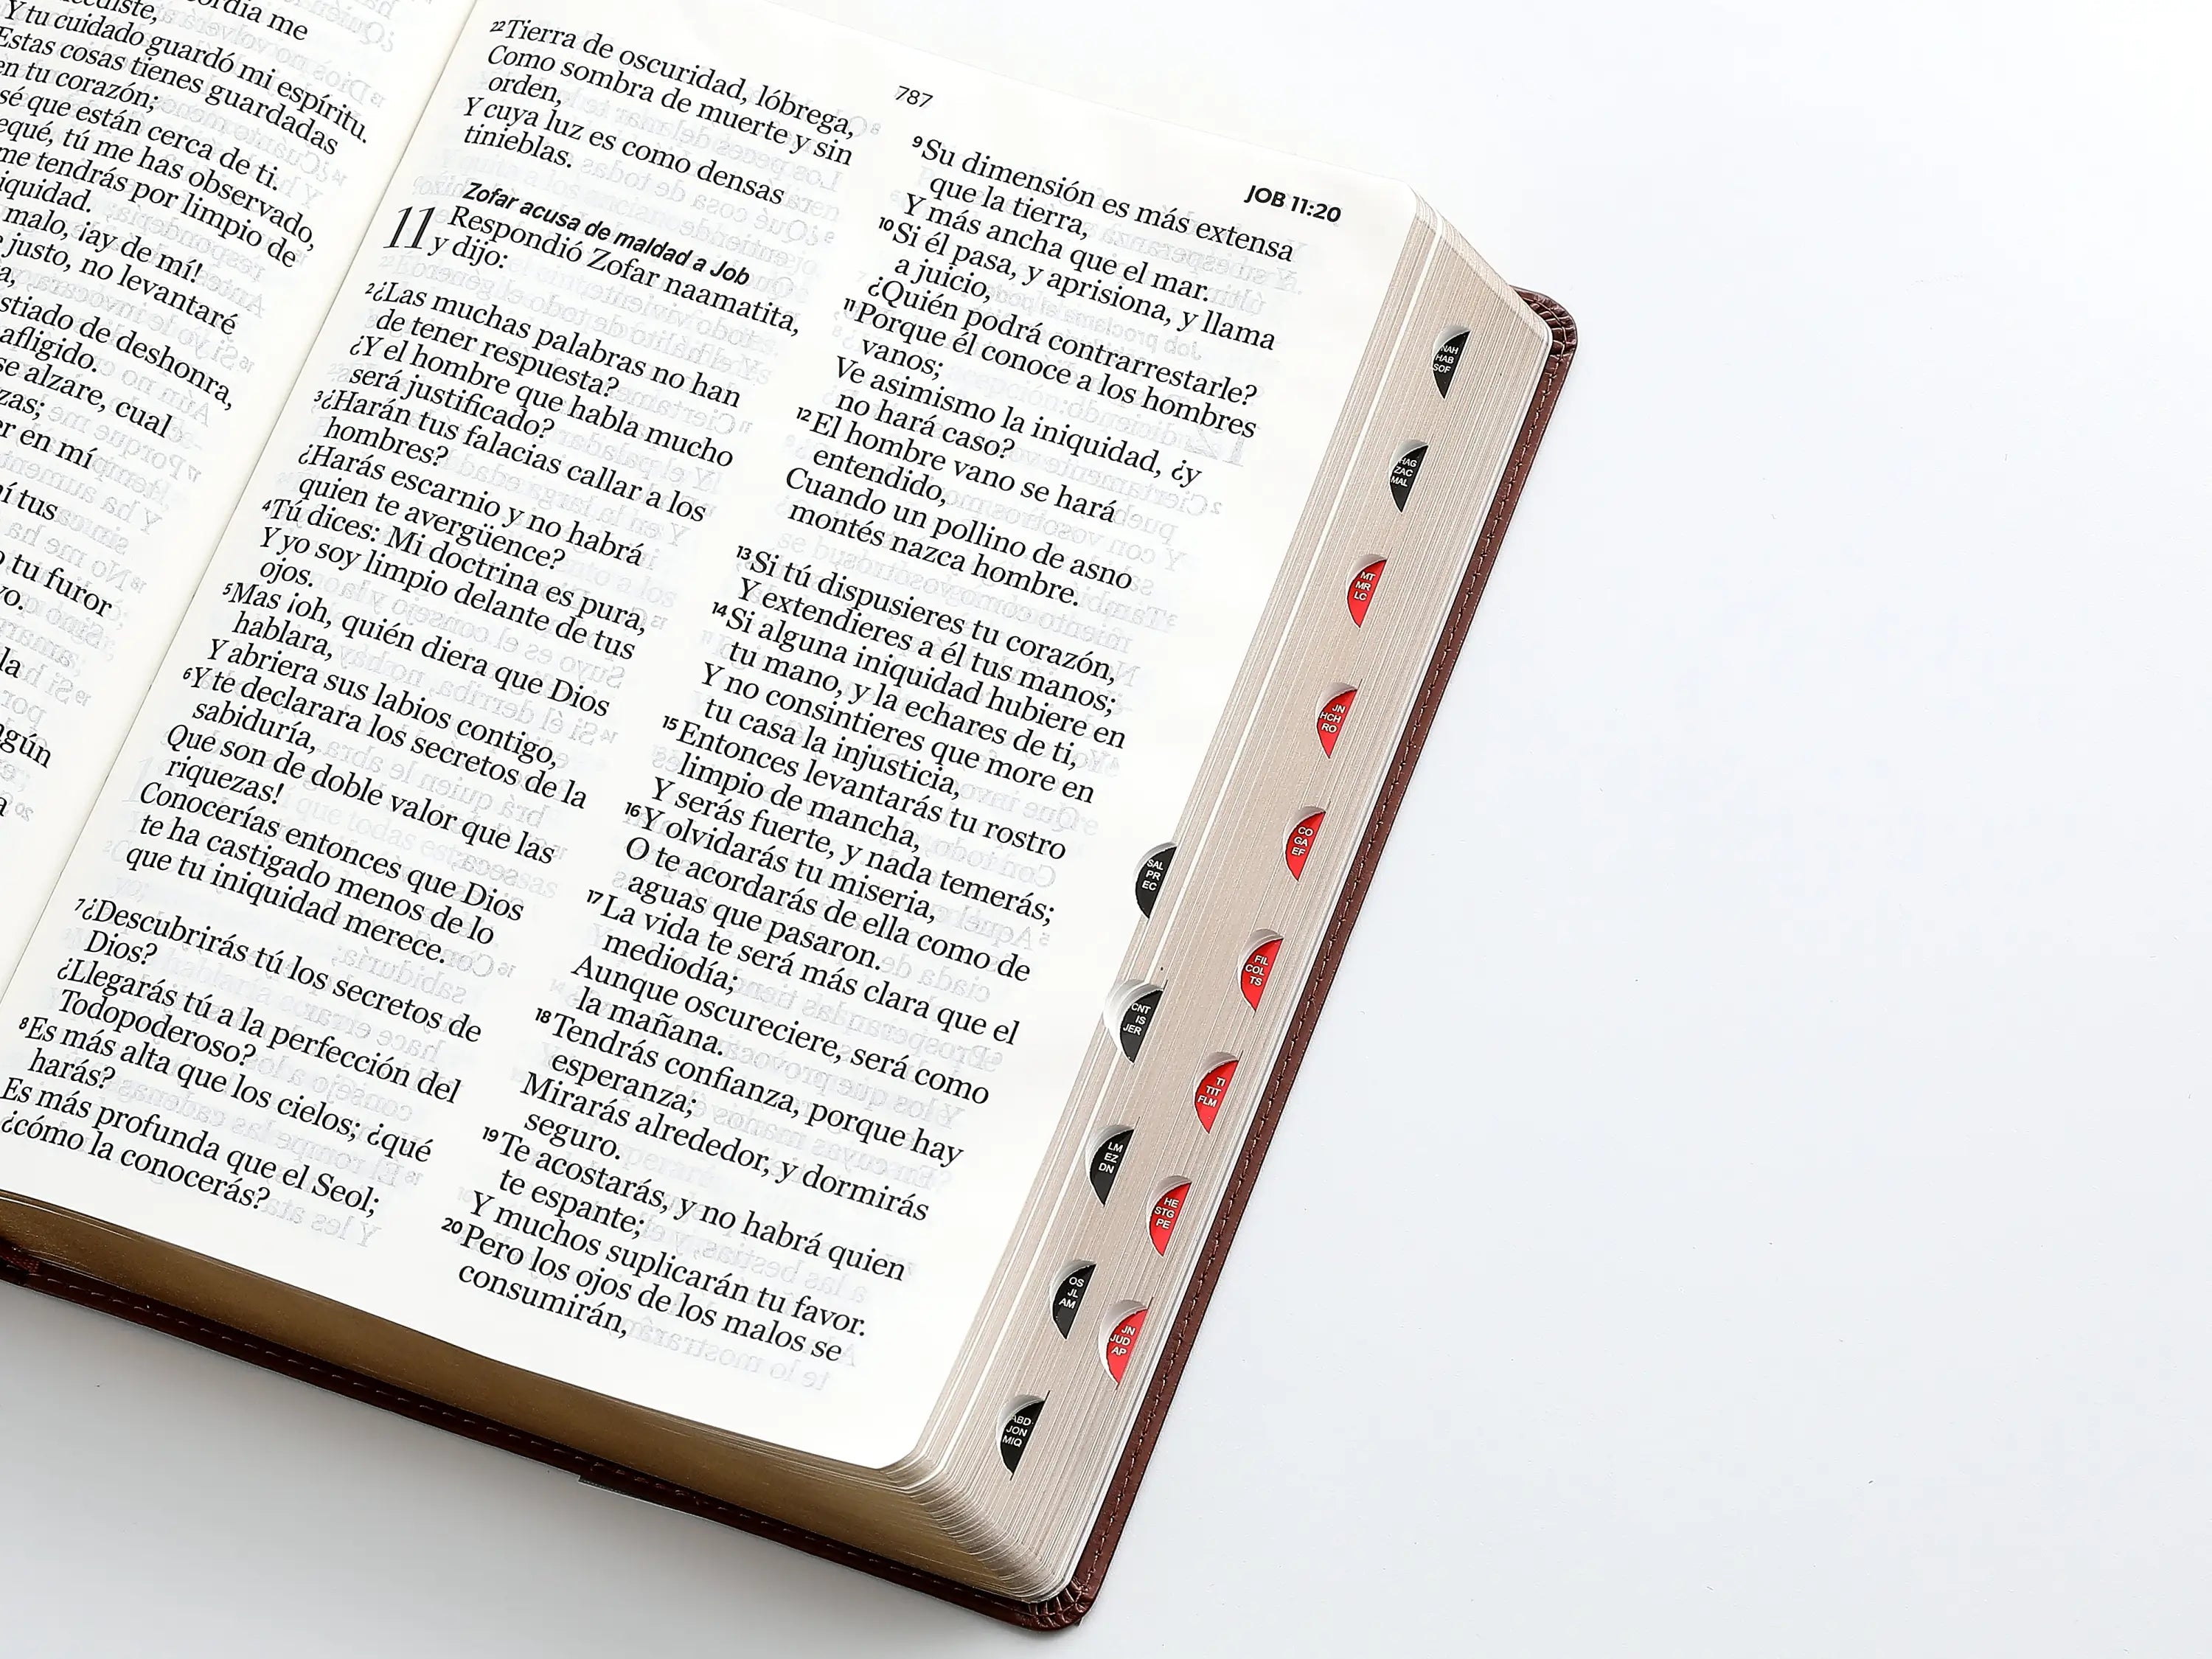 ordia me
Y tu cuidado guardó mi espíritu.
Estas cosas tienes guardadas
en tu corazón;
sé que están cerca de ti.
equé, tú me has observado,
me tendrás por limpio de
iquidad.
malo, ¡ay de mí!
justo, no levantaré
stiado de deshonra,
afligido.
se alzare, cual
zas;
er en mí
í tus
o tu furor
vo.
la
ngún
787
JOB 11:20
22 Tierra de oscuridad, lóbrega,
Como sombra de muerte y sin
orden,
Y cuya luz es como densas
tinieblas.
Zofar acusa de maldad a Job
11 Respondió Zofar naamatita,
y dijo:
2 ¿Las muchas palabras no han
de tener respuesta?
¿Y el hombre que habla mucho
será justificado?
3 ¿Harán tus falacias callar a los
hombres?
¿Harás escarnio y no habrá
quien te avergüence?
4 Tú dices: Mi doctrina es pura,
Y yo soy limpio delante de tus
ojos.
5 Mas ¡oh, quién diera que Dios
hablara,
Y abriera sus labios contigo,
6 Y te declarara los secretos de la
sabiduría,
Que son de doble valor que las
riquezas!
Conocerías entonces que Dios
te ha castigado menos de lo
que tu iniquidad merece.
7 ¿Descubrirás tú los secretos de
Dios?
¿Llegarás tú a la perfección del
Todopoderoso?
8 Es más alta que los cielos; ¿qué
harás?
Es más profunda que el Seol;
¿cómo la conocerás?
9 Su dimensión es más extensa
que la tierra,
Y más ancha que el mar.
10 Si él pasa, y aprisiona, y llama
a juicio,
¿Quién podrá contrarrestarle?
11 Porque él conoce a los hombres
vanos;
Ve asimismo la iniquidad, ¿y
no hará caso?
12 El hombre vano se hará
entendido,
Cuando un pollino de asno
montés nazca hombre.
13 Si tú dispusieres tu corazón,
Y extendieres a él tus manos;
14 Si alguna iniquidad hubiere en
tu mano, y la echares de ti,
Y no consintieres que more en
tu casa la injusticia,
15 Entonces levantarás tu rostro
limpio de mancha,
Y serás fuerte, y nada temerás;
16 Y olvidarás tu miseria,
O te acordarás de ella como de
aguas que pasaron.
17 La vida te será más clara que el
mediodía;
Aunque oscureciere, será como
la mañana.
18 Tendrás confianza, porque hay
esperanza;
Mirarás alrededor, y dormirás
seguro.
19 Te acostarás, y no habrá quien
te espante;
Y muchos suplicarán tu favor.
20 Pero los ojos de los malos se
consumirán,
NAH
HAB
SOF
HAG
ZAC
MAL
MT
MR
LC
JN
HCH
RO
CO
GA
EF
FIL
COL
TS
TI
TIT
FLM
HE
STG
PE
JN
JUD
AP
SAL
PR
EC
CNT
IS
JER
LM
EZ
DN
OS
JL
AM
ABD
JON
MIQ